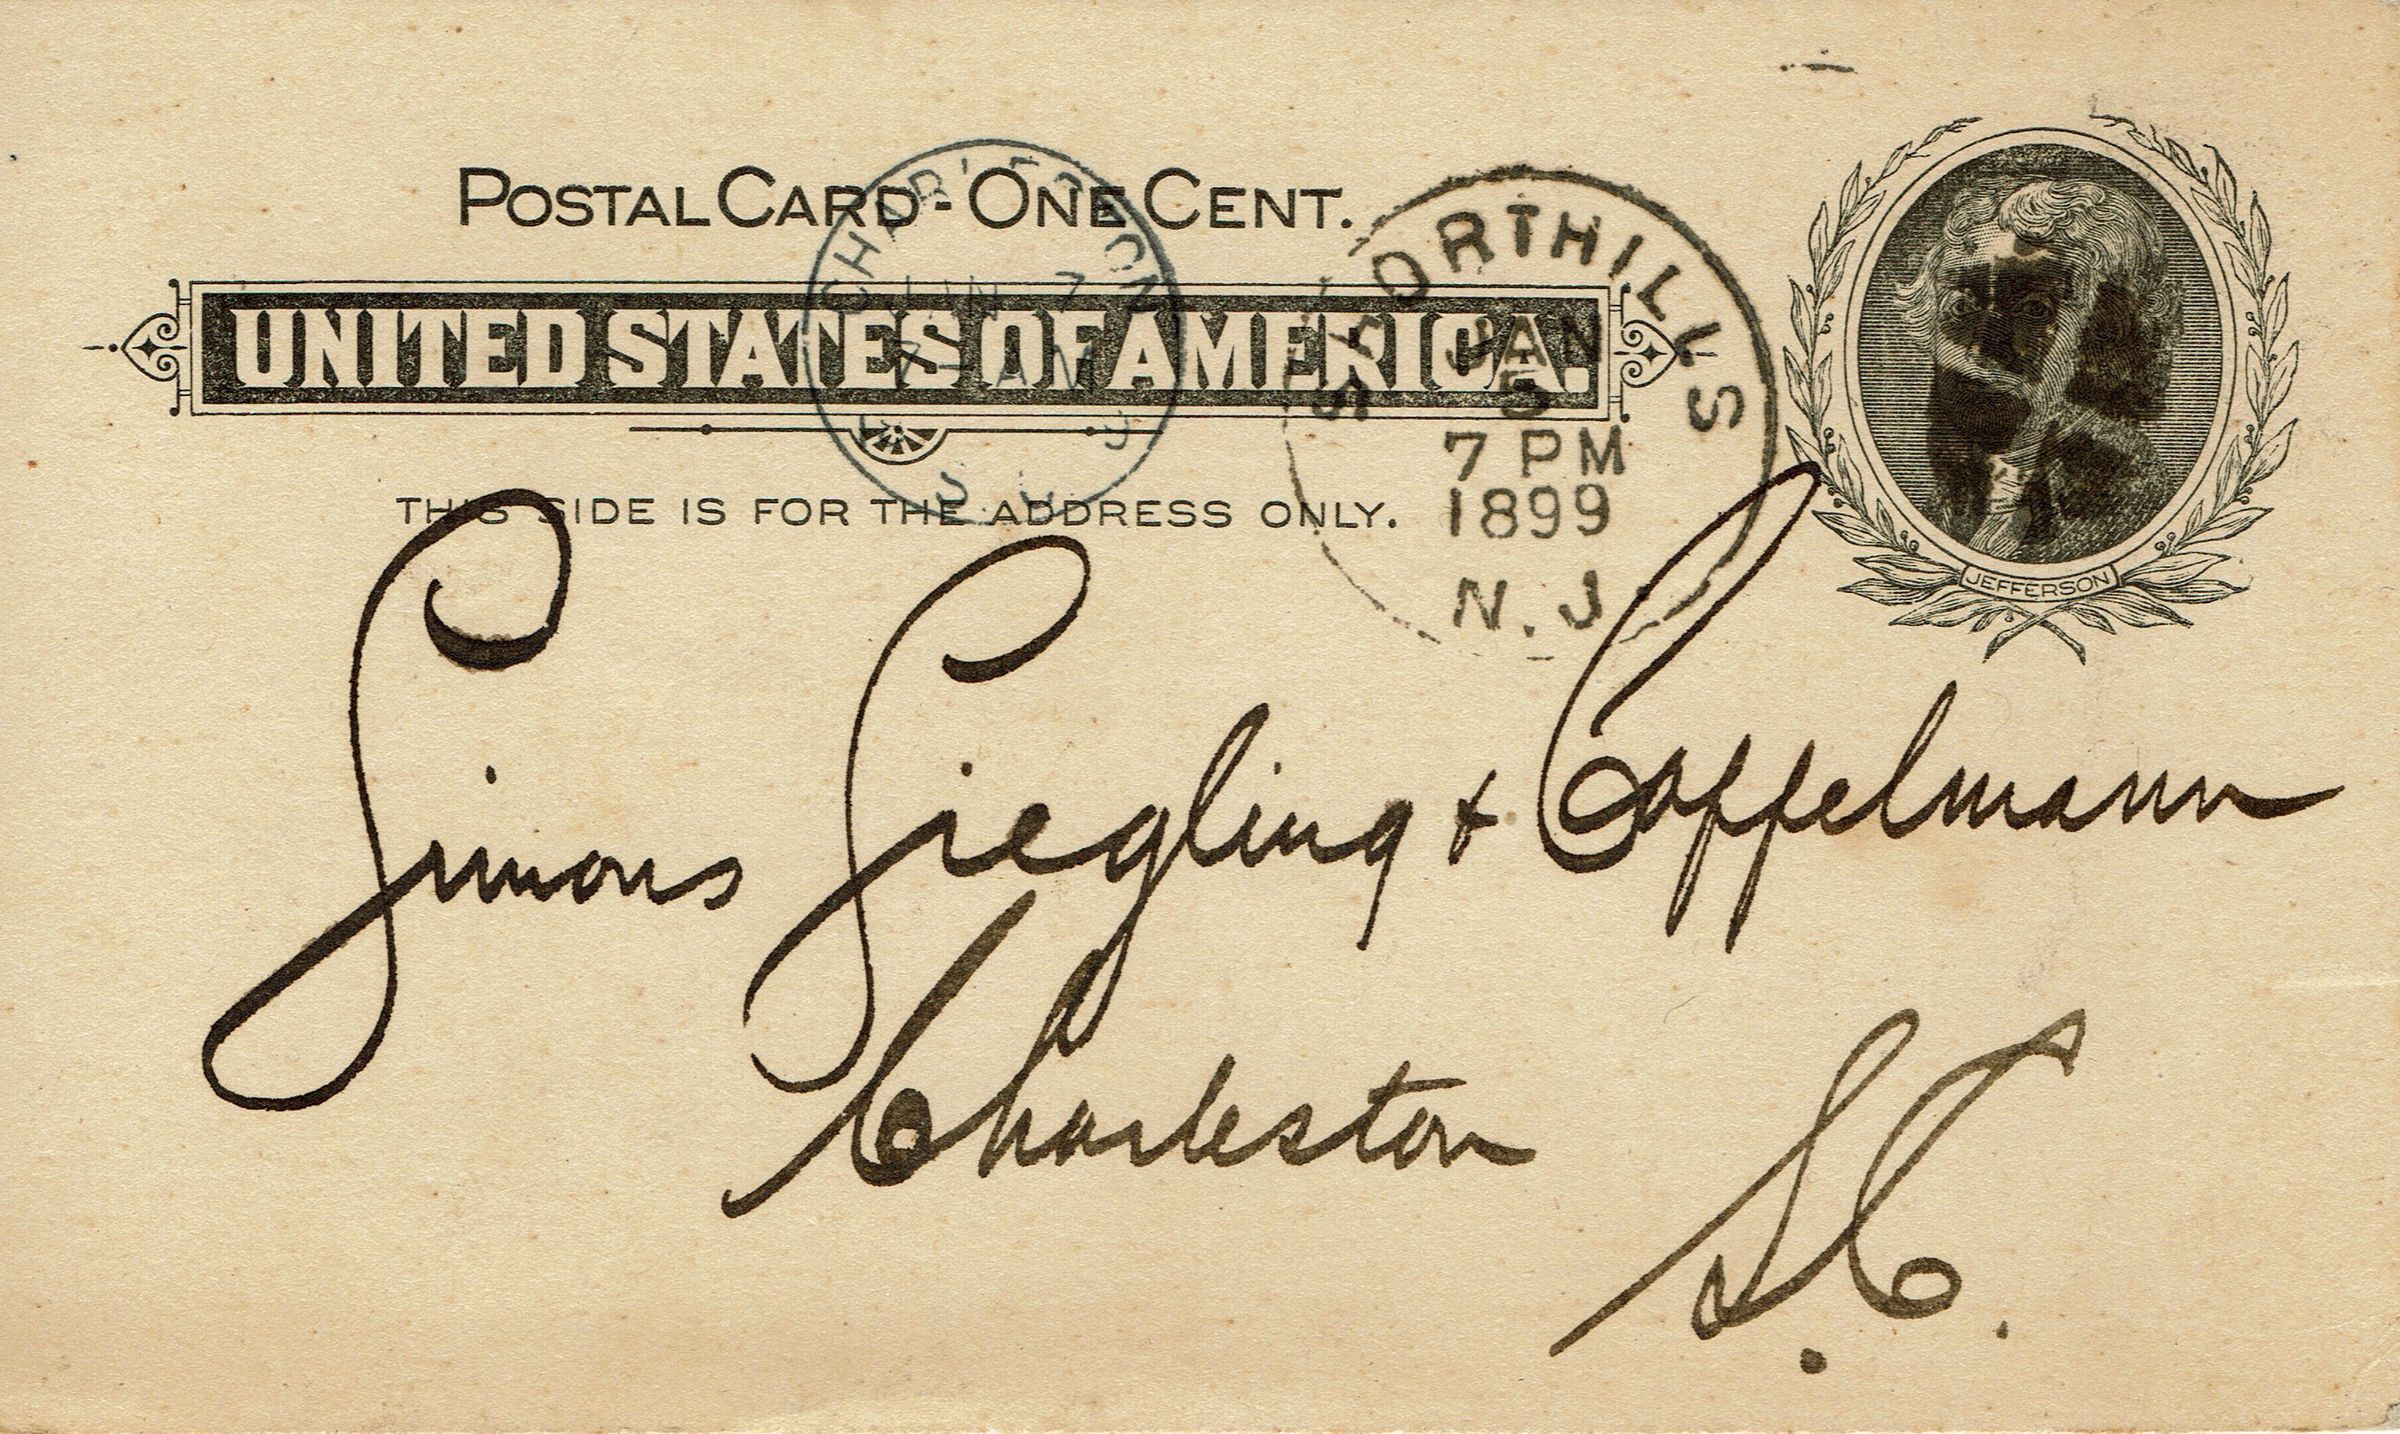 POSTAL CARD - ONE CENT.
UNITED STATES OF AMERICA.
THIS SIDE IS FOR THE ADDRESS ONLY.
CHAR'LESTON
JAN 7
7 AM
S C
SHORT HILLS
JAN
5
7 PM
1899
N. J
JEFFERSON
Simons Siegling & Cappelmann
Charleston
S. C.